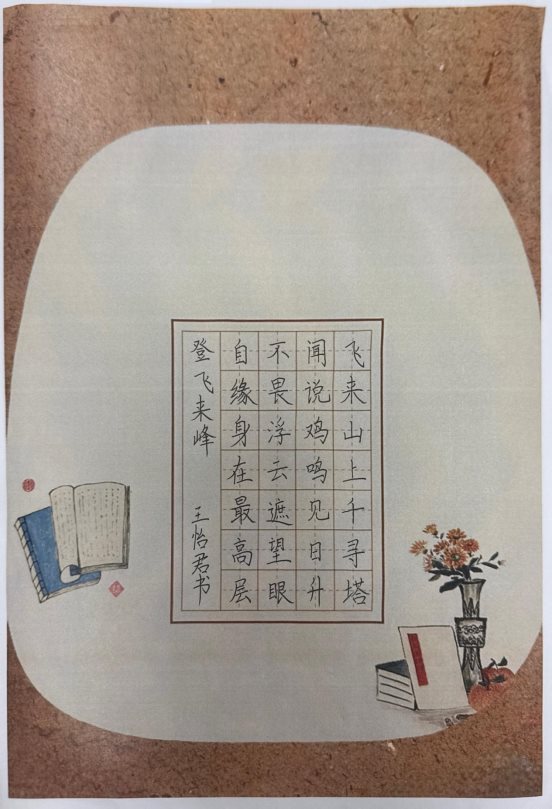 飞来山上千寻塔
闻说鸡鸣见日升
不畏浮云遮望眼
自缘身在最高层
登飞来峰 王怡君书